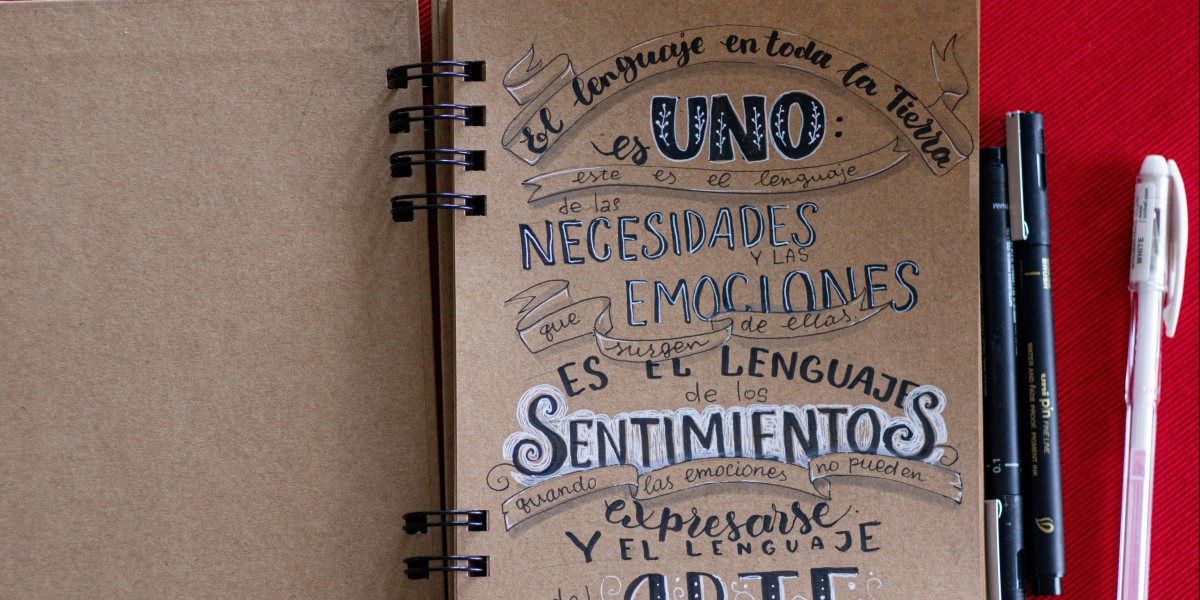 El lenguaje en toda la Tierra
es UNO:
este es el lenguaje
de las
NECESIDADES
Y LAS
EMOCIONES
que surgen de ellas.
ES EL LENGUAJE
de los
SENTIMIENTOS
quando las emociones no pueden
expresarse.
Y EL LENGUAJE
del ARTE
BRUSH
WATER AND FADE PROOF PIGMENT INK
uni pin FINE LINE
0.1
WHITE